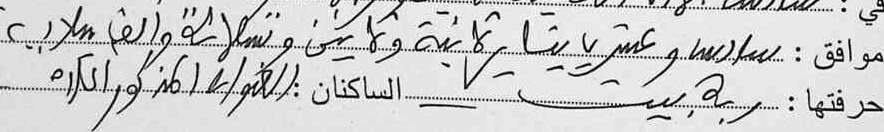 في :
موافق : سادس و عشرين يناير ثمانية وثمانين وتسعمائة والف ميلادي
حرفتها : ربة بيت الساكنان : العنوان المذكور اعلاه